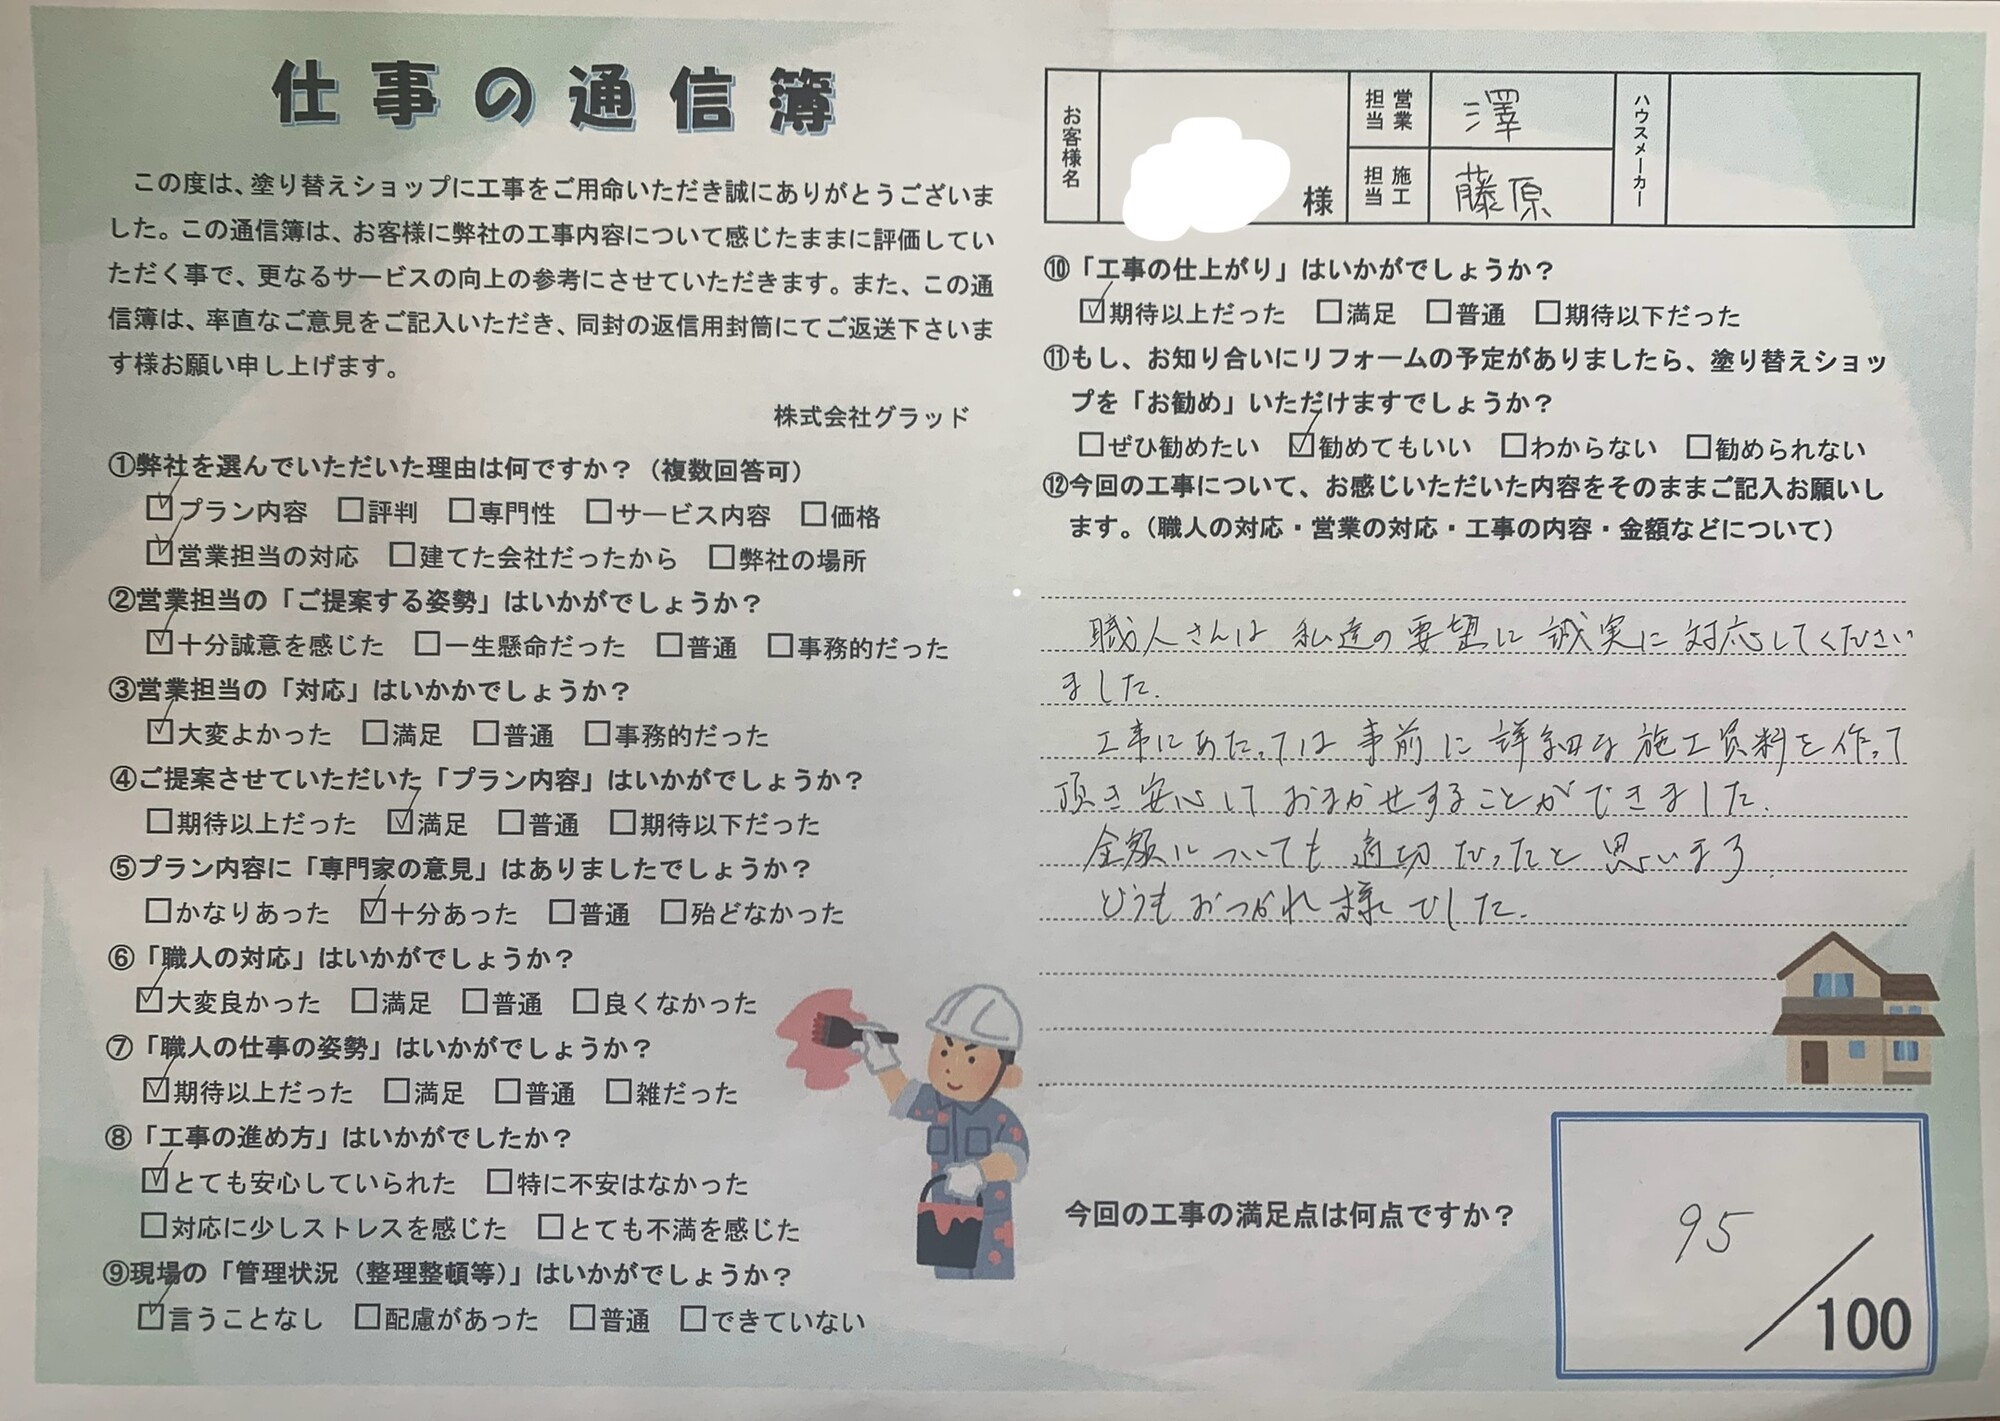 仕事の通信簿
この度は、塗り替えショップに工事をご用命いただき誠にありがとうございま
した。この通信簿は、お客様に弊社の工事内容について感じたままに評価してい
ただく事で、更なるサービスの向上の参考にさせていただきます。また、この通
信簿は、率直なご意見をご記入いただき、同封の返信用封筒にてご返送下さいま
す様お願い申し上げます。
株式会社グラッド
①弊社を選んでいただいた理由は何ですか？（複数回答可）
☑プラン内容 □評判 □専門性 □サービス内容 □価格
☑営業担当の対応 □建てた会社だったから □弊社の場所
②営業担当の「ご提案する姿勢」はいかがでしょうか？
☑十分誠意を感じた □一生懸命だった □普通 □事務的だった
③営業担当の「対応」はいかかでしょうか？
☑大変よかった □満足 □普通 □事務的だった
④ご提案させていただいた「プラン内容」はいかがでしょうか？
□期待以上だった ☑満足 □普通 □期待以下だった
⑤プラン内容に「専門家の意見」はありましたでしょうか？
□かなりあった ☑十分あった □普通 □殆どなかった
⑥「職人の対応」はいかがでしょうか？
☑大変良かった □満足 □普通 □良くなかった
⑦「職人の仕事の姿勢」はいかがでしょうか？
☑期待以上だった □満足 □普通 □雑だった
⑧「工事の進め方」はいかがでしたか？
☑とても安心していられた □特に不安はなかった
□対応に少しストレスを感じた □とても不満を感じた
⑨現場の「管理状況（整理整頓等）」はいかがでしょうか？
☑言うことなし □配慮があった □普通 □できていない
お客様名 様 営業担当 澤 ハウスメーカー
施工担当 藤原
⑩「工事の仕上がり」はいかがでしょうか？
☑期待以上だった □満足 □普通 □期待以下だった
⑪もし、お知り合いにリフォームの予定がありましたら、塗り替えショッ
プを「お勧め」いただけますでしょうか？
□ぜひ勧めたい ☑勧めてもいい □わからない □勧められない
⑫今回の工事について、お感じいただいた内容をそのままご記入お願いし
ます。（職人の対応・営業の対応・工事の内容・金額などについて）
職人さんは私達の要望に誠実に対応してください
ました.
工事にあたっては事前に詳細な施工資料を作って
頂き安心しておまかせすることができました.
金額についても適切だったと思います.
どうもおつかれ様でした.
今回の工事の満足点は何点ですか？
95
／100